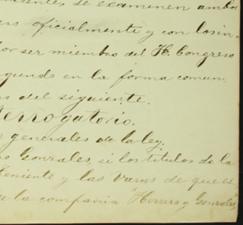 se examinen ambos
oficialmente y con la sin-
por ser miembro del H. Congreso
en la forma comun
del siguiente.
Interrogatorio.
generales de la ley.
Gonzales, si los titulos de la
y las varas de que se
la compañia "Herrera y Gonzales,